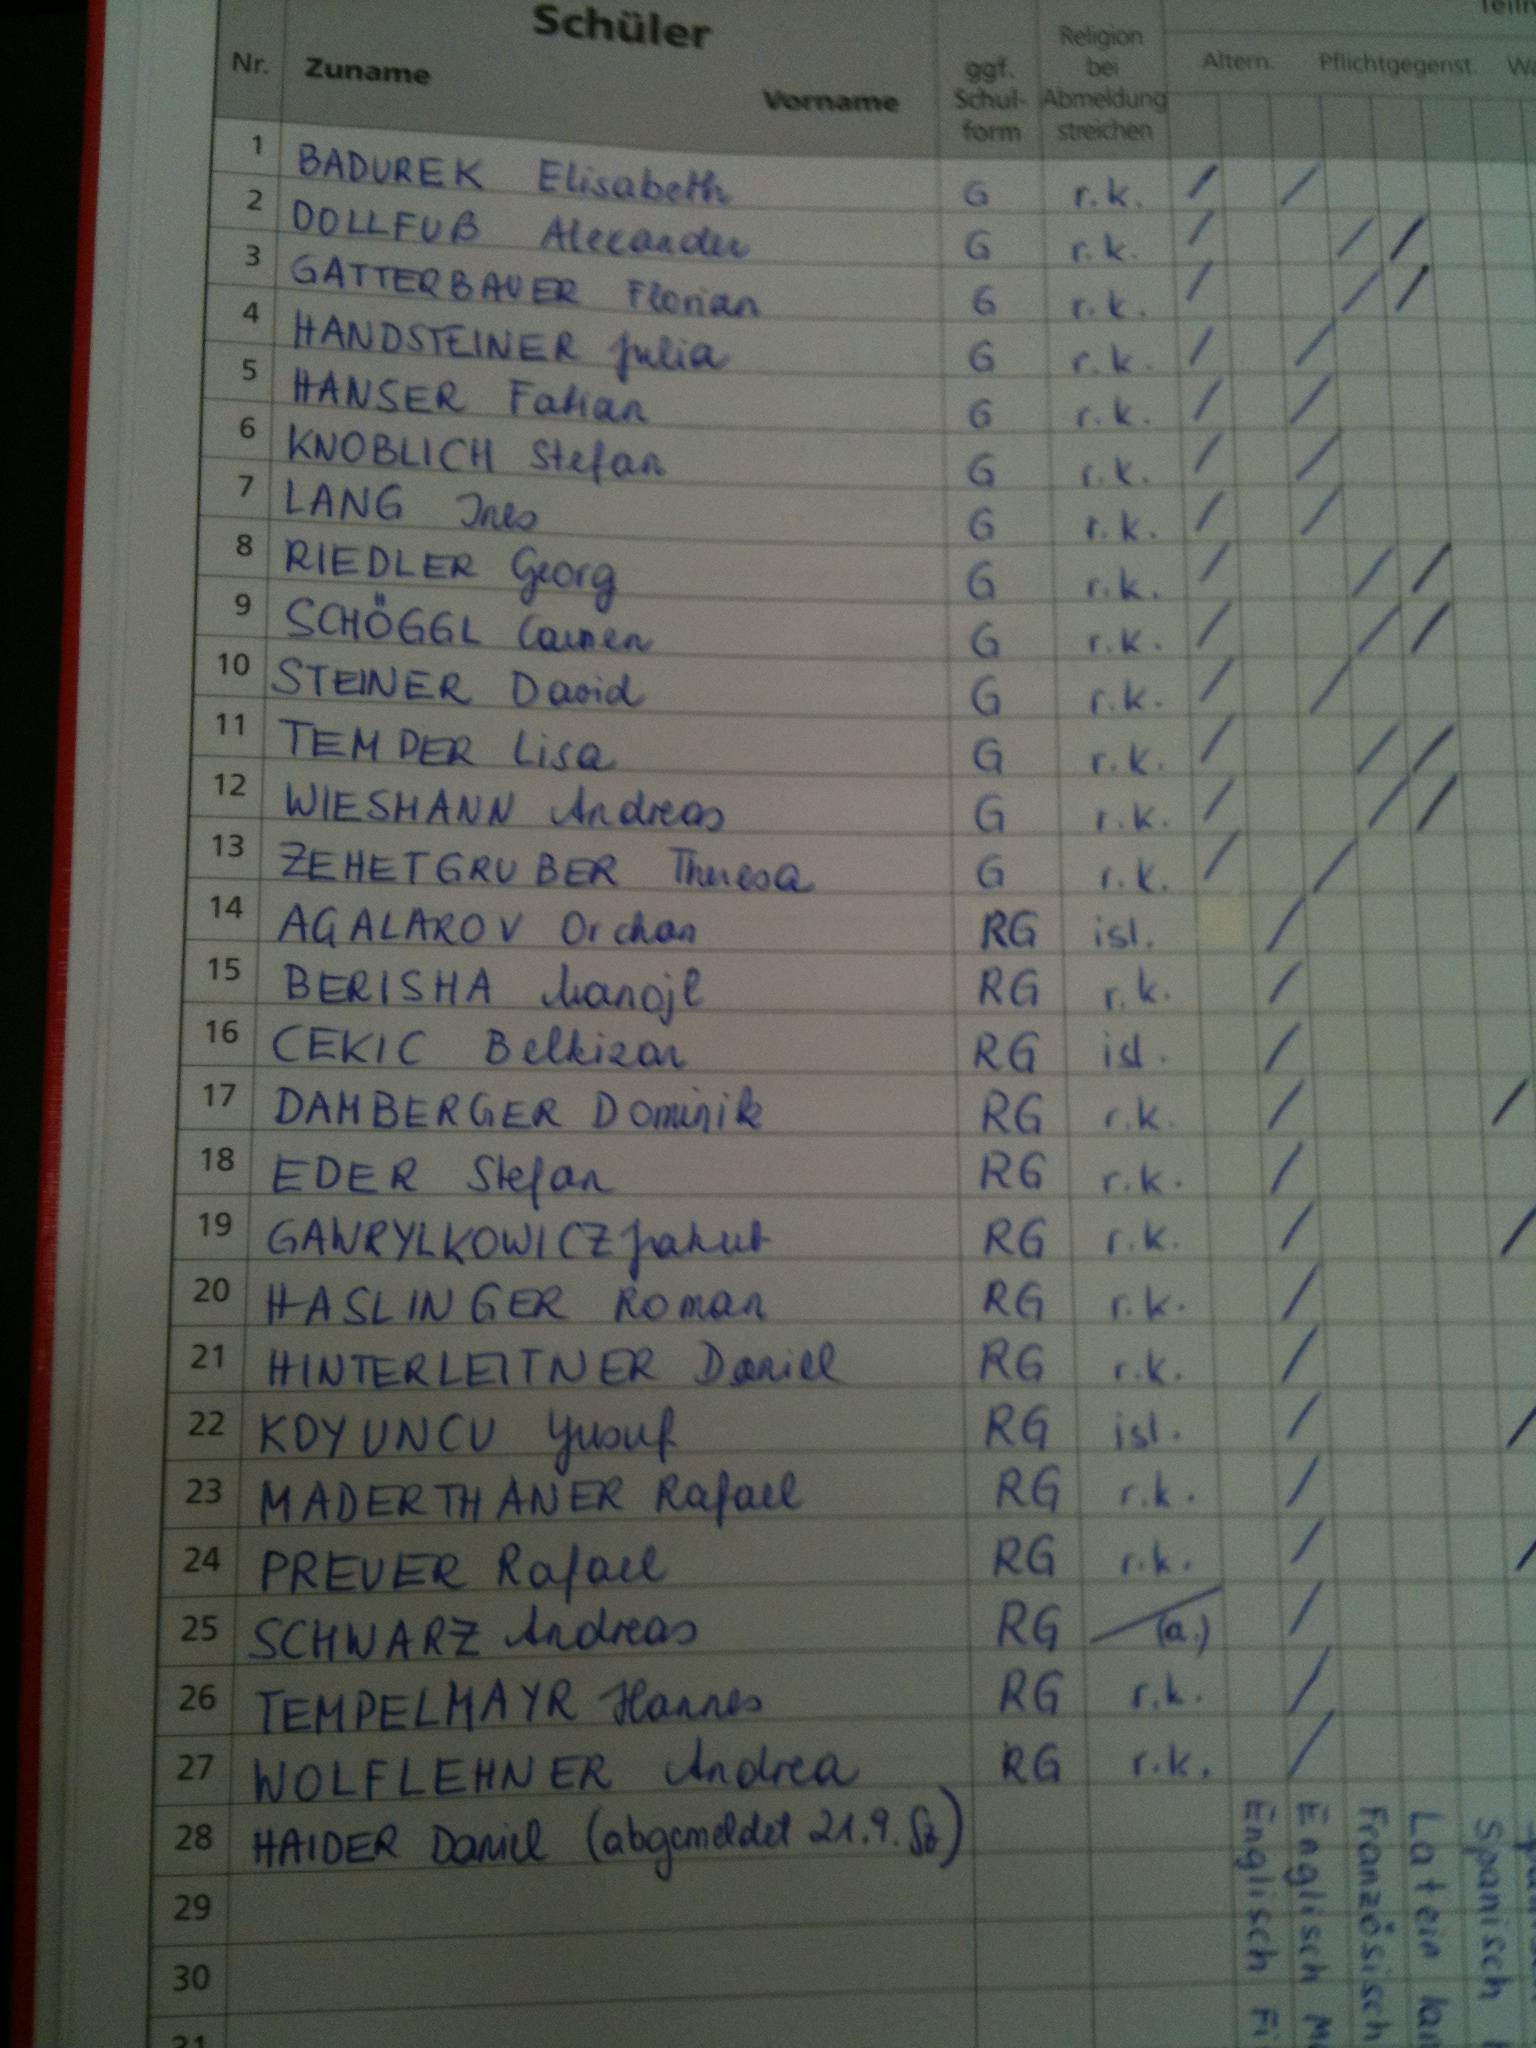 Schüler
Nr. Zuname Vorname ggf. Schul-form Religion bei Abmeldung streichen Altern. Pflichtgegenst.
1 BADUREK Elisabeth G r.k. / /
2 DOLLFUß Alexander G r.k. / / /
3 GATTERBAUER Florian G r.k. / / /
4 HANDSTEINER Julia G r.k. / /
5 HANSER Fabian G r.k. / /
6 KNOBLICH Stefan G r.k. / /
7 LANG Ines G r.k. / /
8 RIEDLER Georg G r.k. / / /
9 SCHÖGGL Carmen G r.k. / / /
10 STEINER David G r.k. / /
11 TEMPER Lisa G r.k. / / /
12 WIESMANN Andreas G r.k. / / /
13 ZEHETGRUBER Theresa G r.k. / /
14 AGALAROV Orchan RG isl. /
15 BERISHA Manojl RG r.k. /
16 CEKIC Belkizan RG isl. /
17 DAMBERGER Dominik RG r.k. / /
18 EDER Stefan RG r.k. /
19 GAWRYLKOWICZ Jakub RG r.k. / /
20 HASLINGER Roman RG r.k. /
21 HINTERLEITNER Daniel RG r.k. /
22 KOYUNCU Yusuf RG isl. / /
23 MADERTHANER Rafael RG r.k. /
24 PREUER Rafael RG r.k. / /
25 SCHWARZ Andreas RG (a.) /
26 TEMPELMAYR Hannes RG r.k. /
27 WOLFLEHNER Andrea RG r.k. /
28 HAIDER Daniel (abgemeldet 21.9. Sz)
29
30
31
Englisch
Englisch
Französisch
Latein
Spanisch